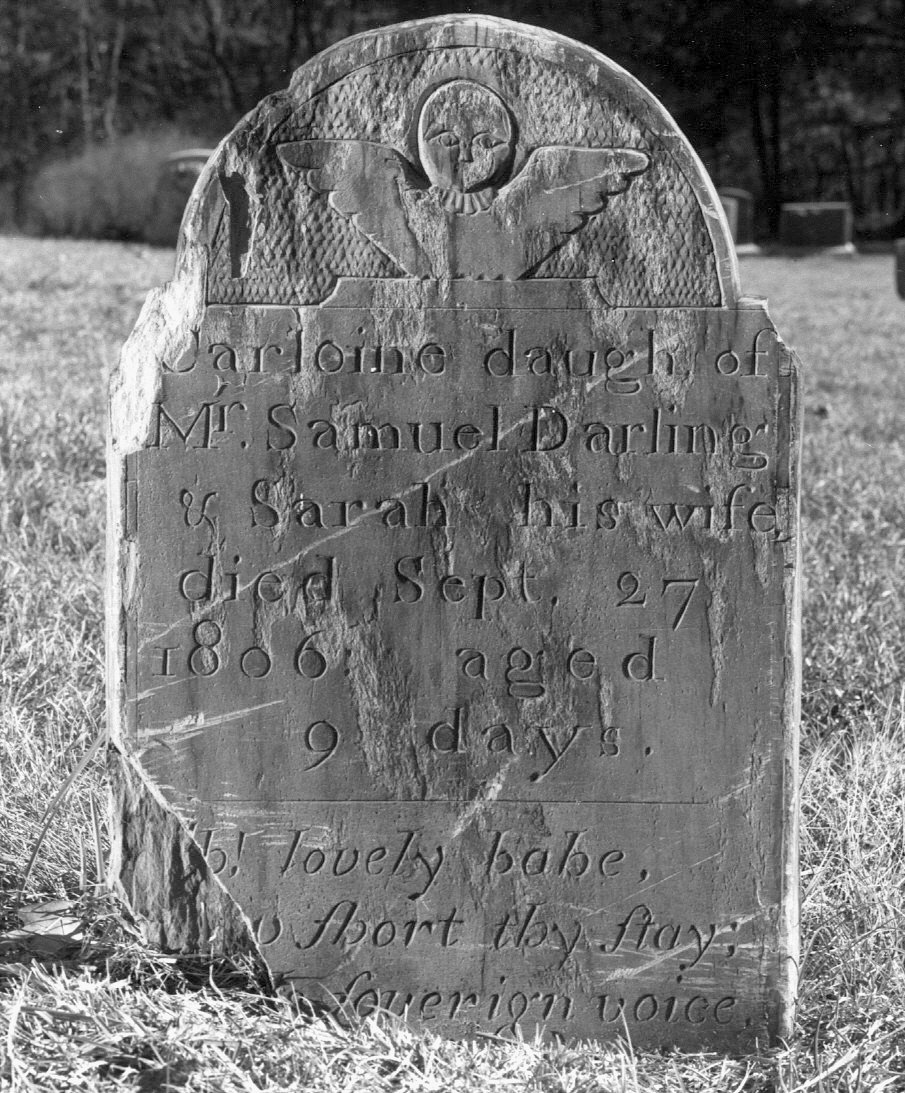 Carloine daugh. of
Mr. Samuel Darling
& Sarah his wife,
died Sept. 27
1806 aged
9 days.
h! lovely babe,
w ſhort thy ſtay;
ſovereign voice,